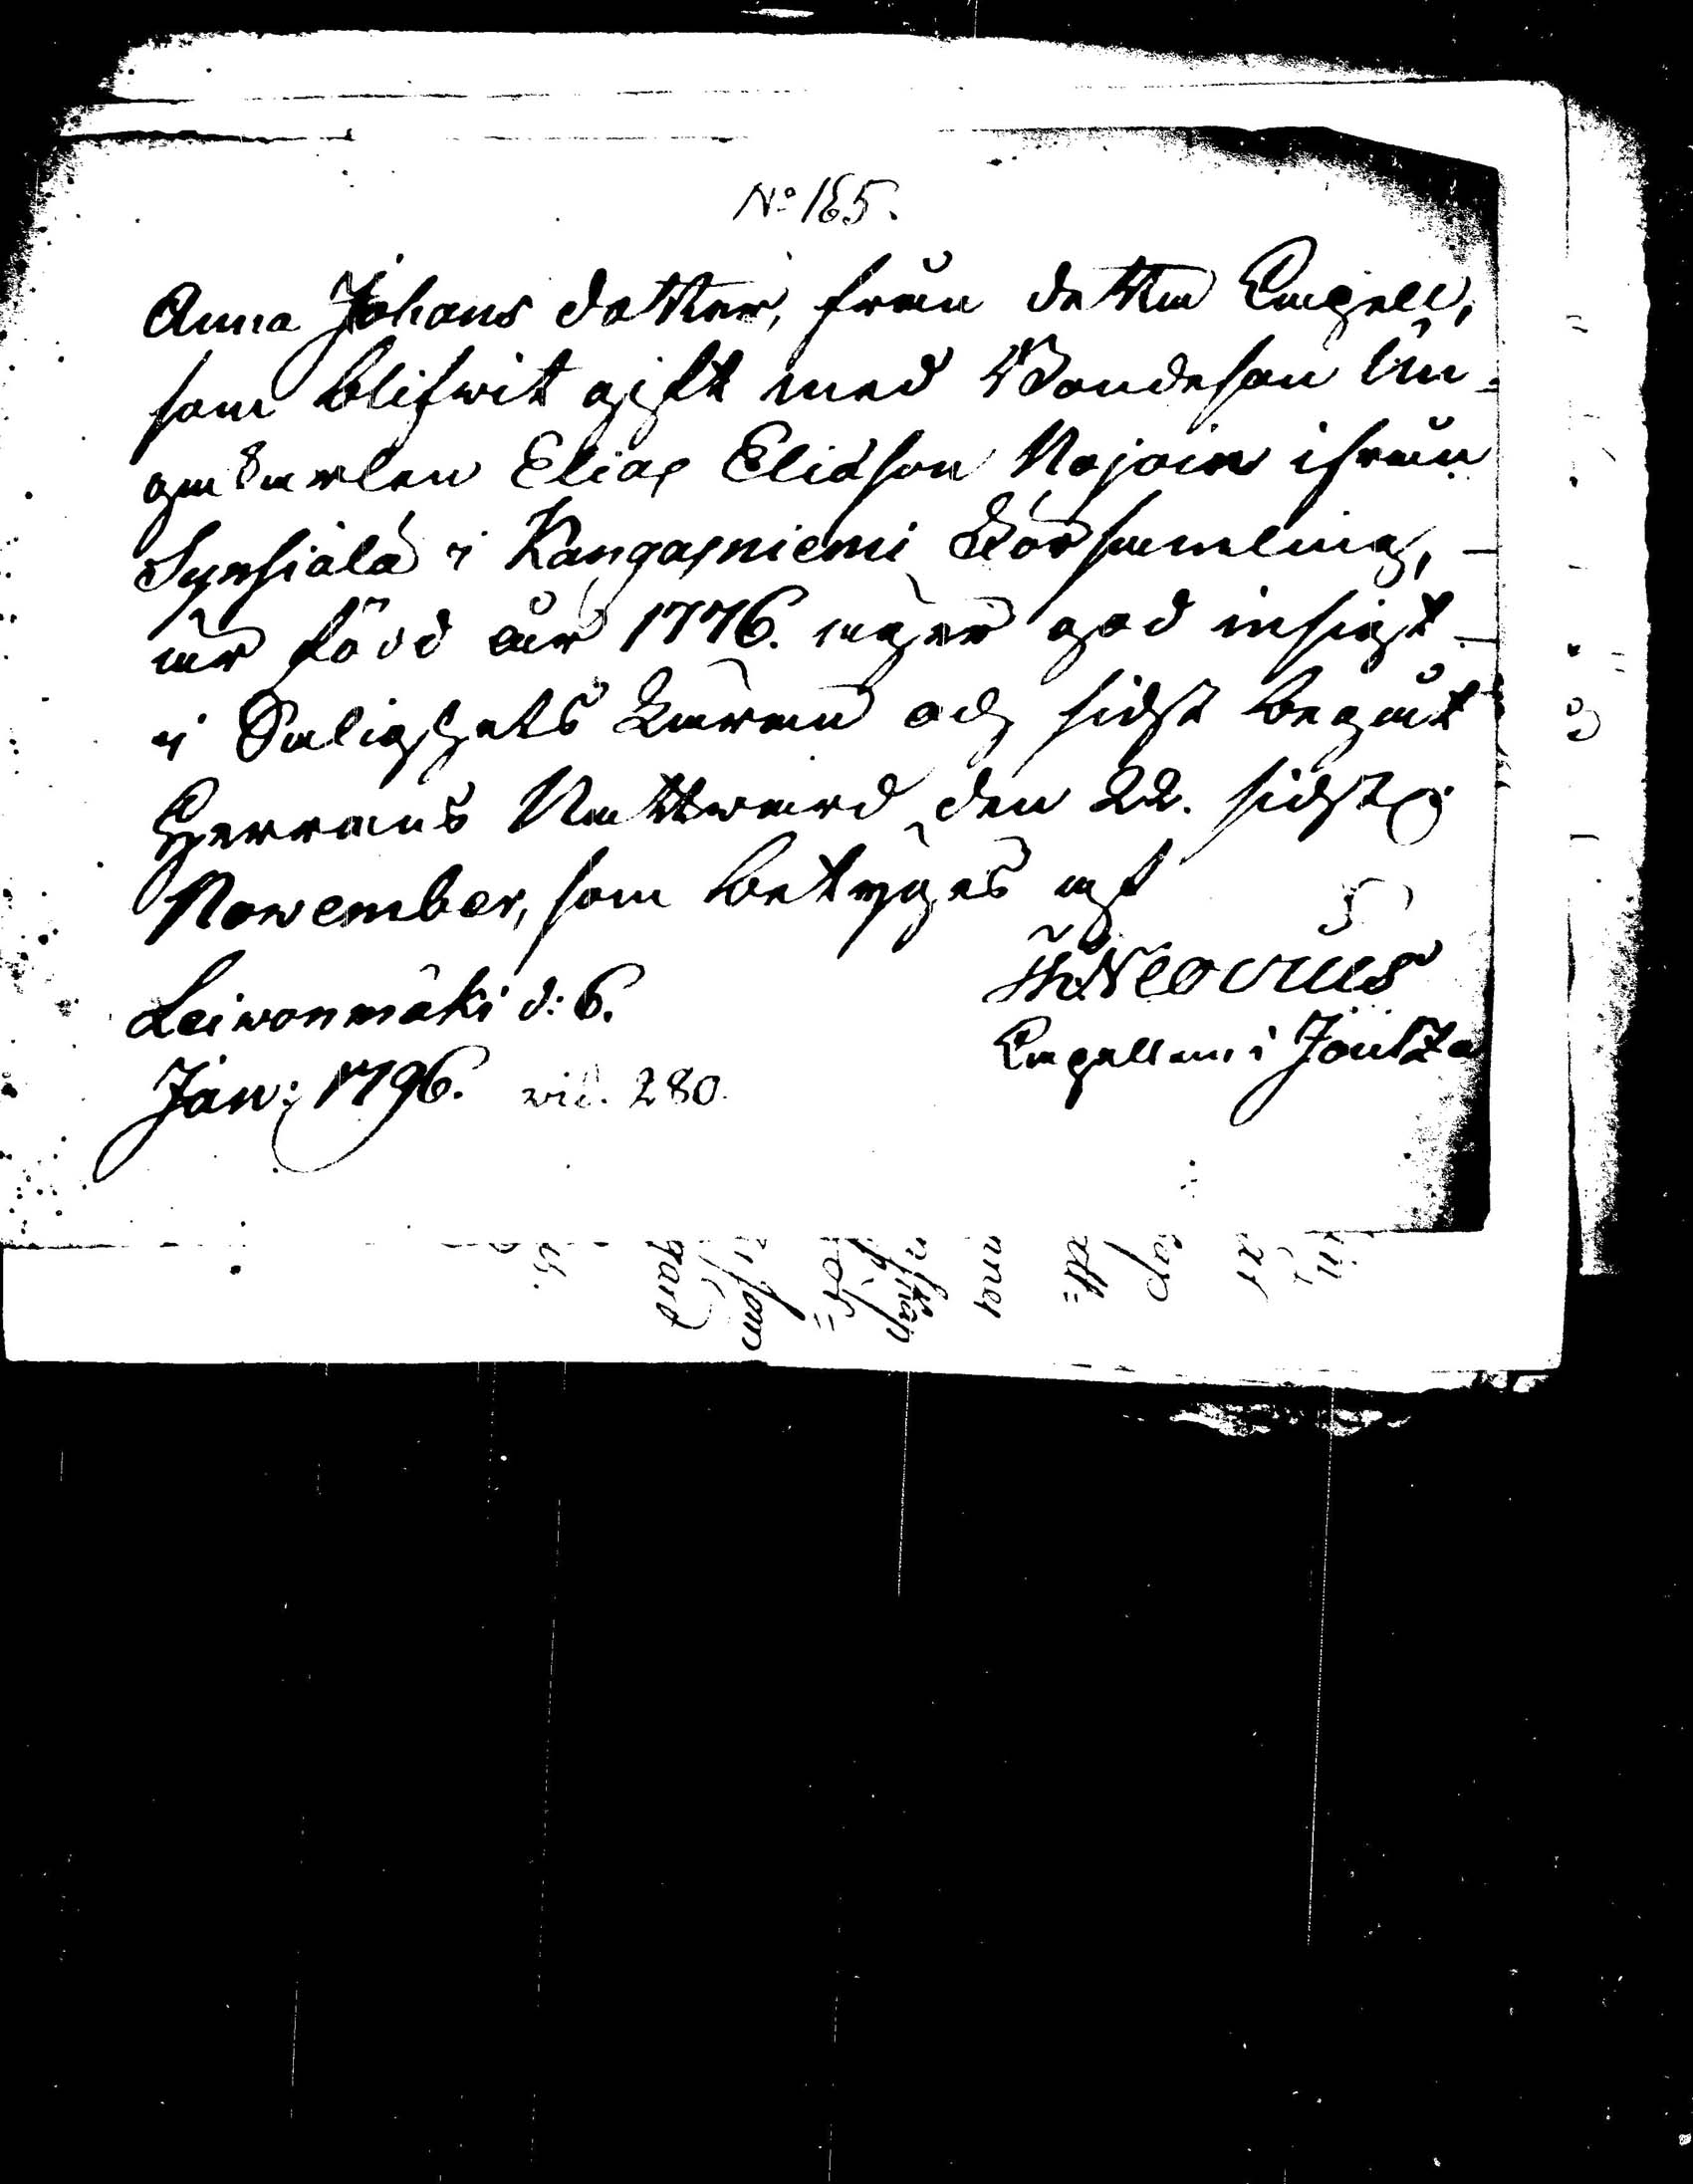 No 165.
Anna Johans dotter, från detta Capell,
som blifwit gift med Bondeson Un-
gakarlen Elias Eliason Nojoin ifrån
Synsiälä i Kangasniemi Församling,
är född år 1776. äger god insigt
i Salighets Läran och sidst begåt
Herrans Nattward den 22. sidstl:
November, som betyges af
Leiwonmäki d: 6.
Jan: 1796. vid. 280.
Neovius
Capellan i Joutza
gård
som